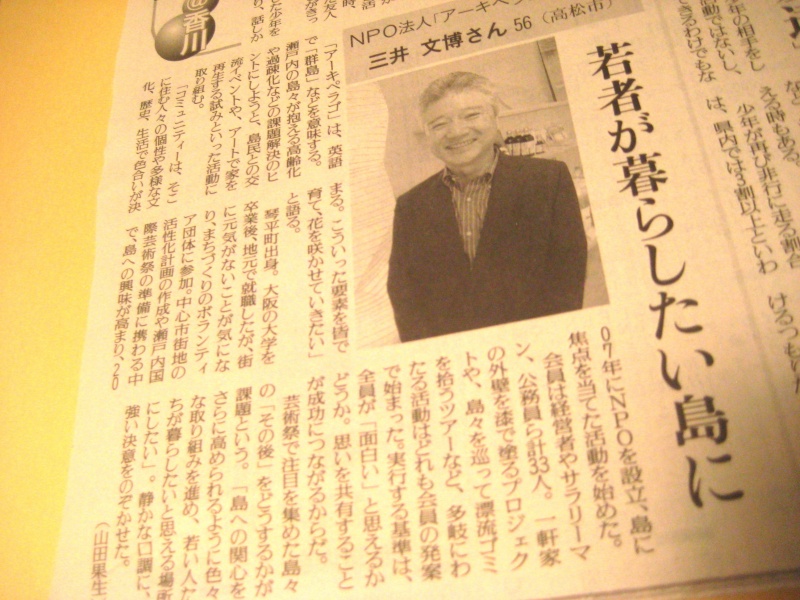 香川
NPO法人「アーキペラゴ
三井 文博さん 56（高松市）
若者が暮らしたい島に
「アーキペラゴ」は、英語
で「群島」などを意味する。
瀬戸内の島々が抱える高齢化
や過疎化などの課題解決のヒ
ントにしようと、島民との交
流イベントや、アートで家を
再生する試みといった活動に
取り組む。
「コミュニティーは、そこ
に住む人々の個性や多様な文
化、歴史、生活で色合いが決
まる。こういった要素を皆で
育て、花を咲かせていきたい」
と語る。
琴平町出身。大阪の大学を
卒業後、地元で就職したが、街
に元気がないことが気にな
り、まちづくりのボランティ
ア団体に参加。中心市街地の
活性化計画の作成や瀬戸内国
際芸術祭の準備に携わる中
で、島への興味が高まり、20
07年にNPOを設立、島に
焦点を当てた活動を始めた。
会員は経営者やサラリーマ
ン、公務員ら計33人。一軒家
の外壁を漆で塗るプロジェク
トや、島々を巡って漂流ゴミ
を拾うツアーなど、多岐にわ
たる活動はどれも会員の発案
で始まった。実行する基準は、
全員が「面白い」と思えるか
どうか。思いを共有すること
が成功につながるからだ。
芸術祭で注目を集めた島々
の「その後」をどうするかが
課題という。「島への関心を
さらに高められるように色々
な取り組みを進め、若い人た
ちが暮らしたいと思える場所
にしたい」。静かな口調に、
強い決意をのぞかせた。
（山田果生
年の相手をし
活動ではないし、
できるわけでもな
える時もある。
少年が再び非行に走る割合
は、県内では3割以上といわ
けるつもり